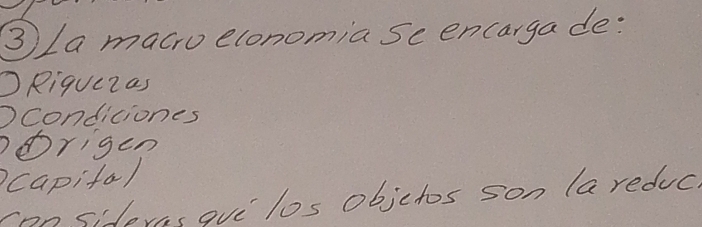 ③ La macro economia se encarga de:
○ Riquezas
○ condiciones
○ Origen
○ capital
consideras qué los objetos son la reduc